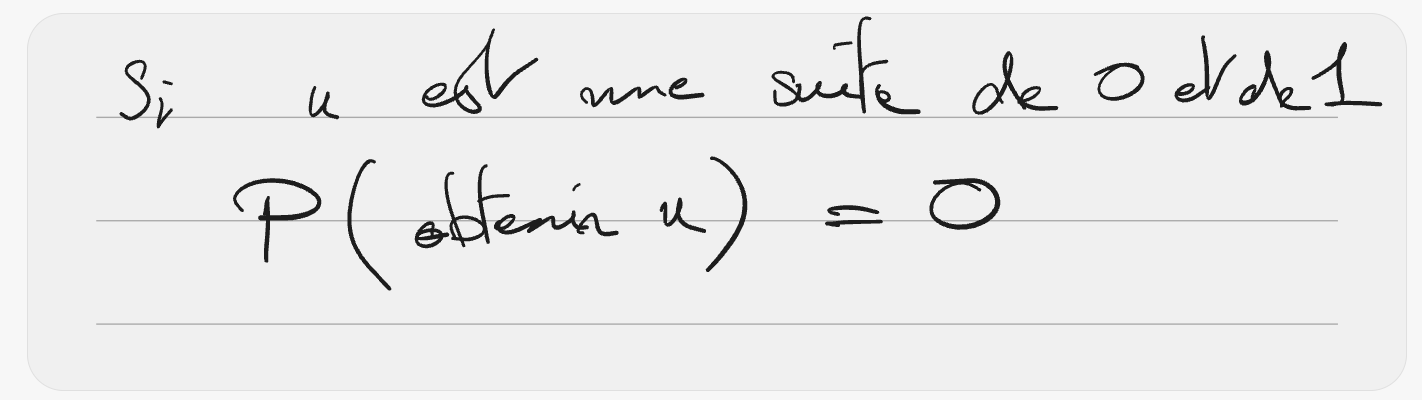 Si u est une suite de 0 et de 1
P(obtenir u) = 0